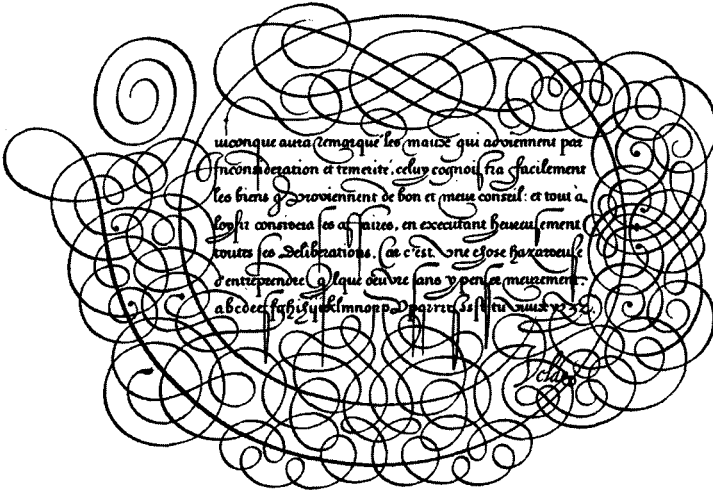 uiconque aura remarqué les maux qui adviennent par
Inconsideration et temerité, celuy cognoistra facilement
les biens qui proviennent de bon et meur conseil: et tout à
loysir considera ses affaires, en executant heureusement
toutes ses Deliberations. Car c'est une chose hazardeuse
d'entreprendre quelque oeuvre sans y penser meurement.